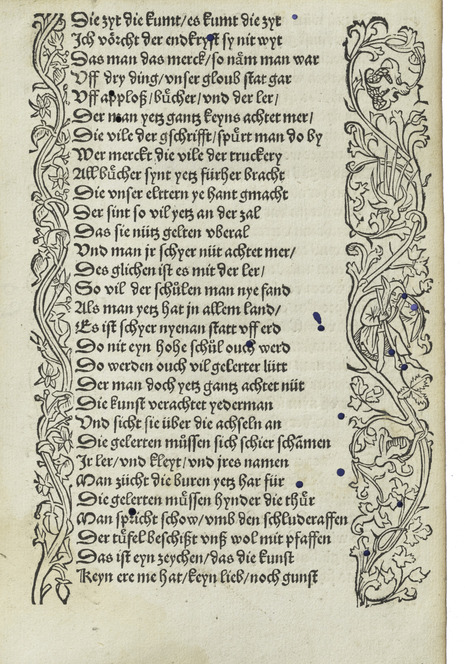 Die zyt die kumt/es kumt die zyt
Ich vörcht der endkryst sy nit wyt
Das man das merck/so näm man war
Vff dry ding/vnser gloub stat gar
Vff apploß/buͤcher/vnd der ler/
Der man yetz gantz keyns achtet mer/
Die vile der gschrifft/spuͤrt man do by
Wer merckt die vile der truckery
All buͤcher synt yetz fürher bracht
Die vnser elttern ye hant gmacht
Der sint so vil yetz an der zal
Das sie nütz gelten vberal
Vnd man jr schyer nüt achtet mer/
Des glichen ist es mit der ler/
So vil der schülen man nye fand
Als man yetz hat in allem land/
Es ist schyer nyenan statt vff erd
Do nit eyn hohe schül ouch werd
Do werden ouch vil gelerter lütt
Der man doch yetz gantz achtet nüt
Die kunst verachtet yederman
Vnd sicht sie über die achseln an
Die gelerten muͤssen sich schier schämen
Ir ler/vnd kleyt/vnd jres namen
Man zücht die buren yetz har für
Die gelerten muͤssen hynder die thuͤr
Man spricht schow/vmb den schluderaffen
Der tüfel beschißt vnß wol mit pfaffen
Das ist eyn zeychen/das die kunst
Keyn ere me hat/keyn lieb/noch gunst